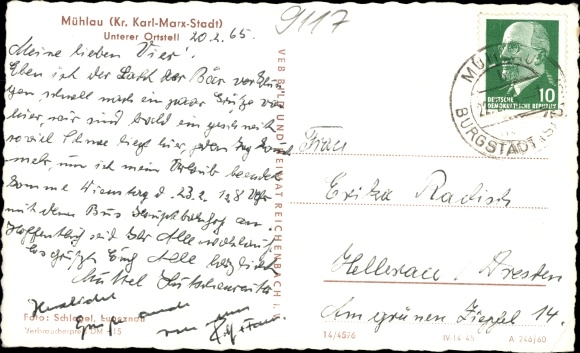 Mühlau (Kr. Karl-Marx-Stadt)
Unterer Ortsteil
20.2.65.
9117
Meine lieben Vier!
Eben ist der der
schnell noch ein paar Grüße von
hier, wir sind bald eingeschneit
soviel Schnee liegt hier, jeden Tag kommt
mehr, nun ist mein Urlaub beendet
komme Dienstag d. 23.2. 128 Uhr
mit dem Bus Hauptbahnhof an
Hoffentlich seid Ihr Alle wohlauf
Es grüßt Euch Alle herzlich
Herzliche
Grüße auch
von
Foto: Schlegel, Lunzenau
Verbraucherpreis DM 15
VEB BILD UND HEIMAT REICHENBACH I. V.
DEUTSCHE
DEMOKRATISCHE REPUBLIK
10
BURGSTÄDT
Frau
Erika Radisch
Hellerau / Dresden
Am grünen Zipfel 14.
14/4576
IV-14-45
A 246/60